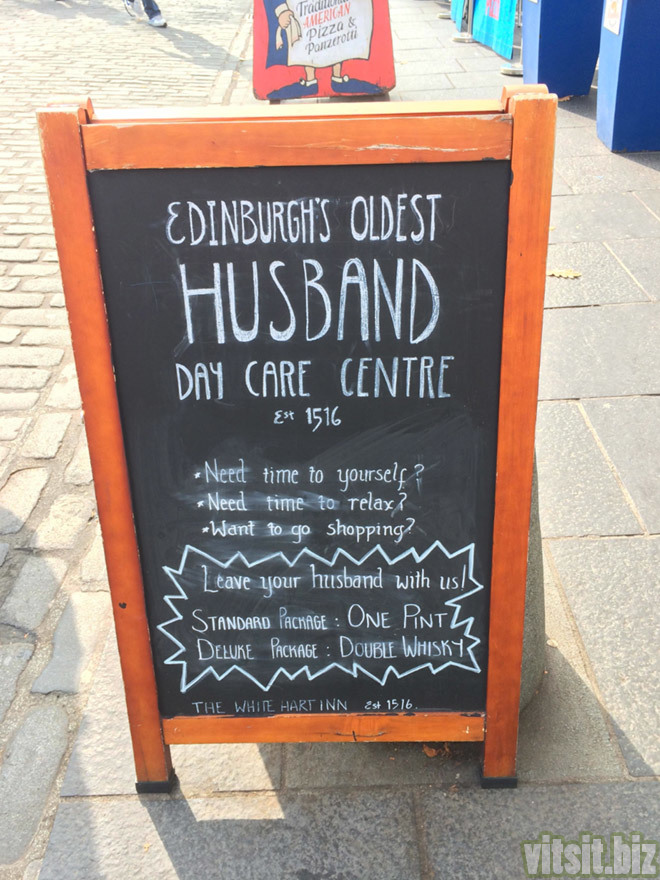 Traditional
AMERICAN
Pizza &
Panzerotti
EDINBURGH'S OLDEST
HUSBAND
DAY CARE CENTRE
Est 1516
*Need time to yourself?
*Need time to relax?
*Want to go shopping?
Leave your husband with us!
STANDARD PACKAGE : ONE PINT
DELUXE PACKAGE : DOUBLE WHISKY
THE WHITE HART INN est 1516.
vitsit.biz